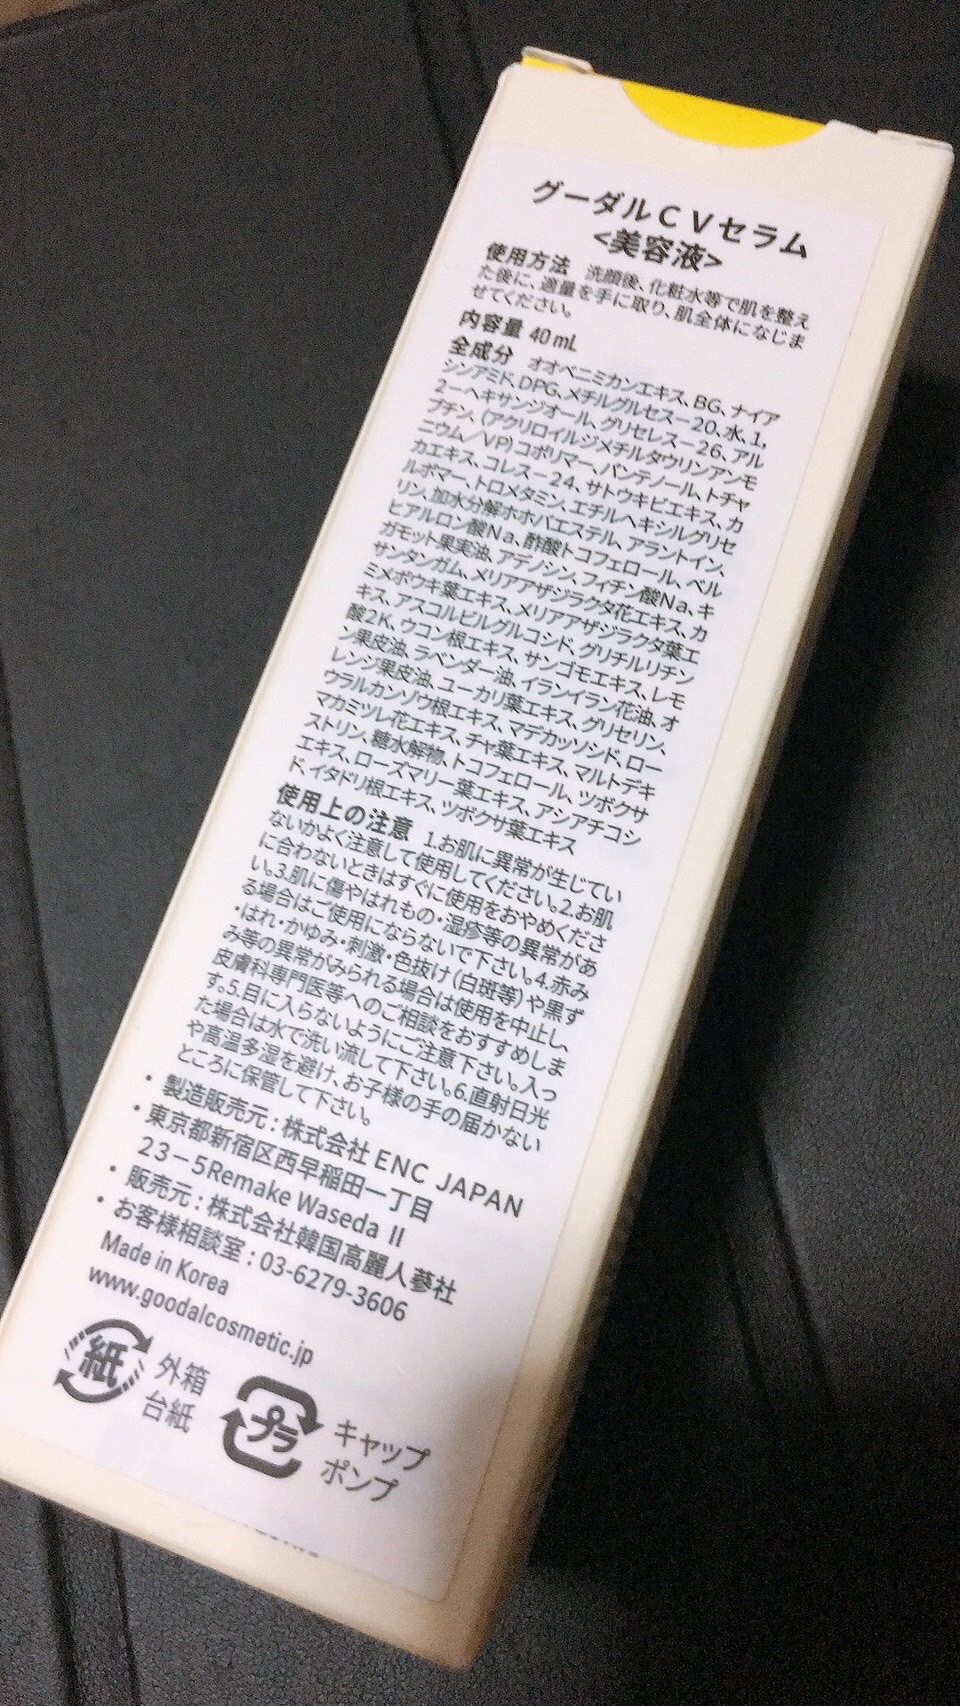 グーダルCVセラム
<美容液>
使用方法 洗顔後、化粧水等で肌を整え
た後に、適量を手に取り、肌全体になじま
せてください。
内容量 40mL
全成分 オオベニミカンエキス、BG、ナイア
シンアミド、DPG、メチルグルセス－20、水、1,
2－ヘキサンジオール、グリセレス－26、アル
ブチン、(アクリロイルジメチルタウリンアンモ
ニウム／VP)コポリマー、パンテノール、トチャ
カエキス、コレス－24、サトウキビエキス、カ
ルボマー、トロメタミン、エチルヘキシルグリセ
リン、加水分解ホホバエステル、アラントイン、
ヒアルロン酸Na、酢酸トコフェロール、ベル
ガモット果実油、アデノシン、フィチン酸Na、キ
サンタンガム、メリアアザジラクタ花エキス、カ
ミメボウキ葉エキス、メリアアザジラクタ葉エ
キス、アスコルビルグルコシド、グリチルリチン
酸2K、ウコン根エキス、サンゴモエキス、レモ
ン果皮油、ラベンダー油、イランイラン花油、オ
レンジ果皮油、ユーカリ葉エキス、グリセリン、
ウラルカンゾウ根エキス、マデカッソシド、ロー
マカミツレ花エキス、チャ葉エキス、マルトデキ
ストリン、糖水解物、トコフェロール、ツボクサ
エキス、ローズマリー葉エキス、アシアチコシ
ド、イタドリ根エキス、ツボクサ葉エキス
使用上の注意 1.お肌に異常が生じてい
ないかよく注意して使用してください。2.お肌
に合わないときはすぐに使用をおやめくださ
い。3.肌に傷やはれもの・湿疹等の異常があ
る場合はご使用にならないで下さい。4.赤み
・はれ・かゆみ・刺激・色抜け(白斑等)や黒ず
み等の異常がみられる場合は使用を中止し、
皮膚科専門医等へのご相談をおすすめしま
す。5.目に入らないようにご注意下さい。入っ
た場合は水で洗い流して下さい。6.直射日光
や高温多湿を避け、お子様の手の届かない
ところに保管して下さい。
・製造販売元：株式会社 ENC JAPAN
・東京都新宿区西早稲田一丁目
23－5Remake Waseda Ⅱ
・販売元：株式会社韓国高麗人蔘社
・お客様相談室：03-6279-3606
Made in Korea
www.goodalcosmetic.jp
紙 外箱
台紙
プラ キャップ
ポンプ